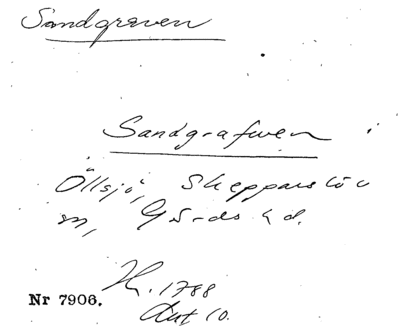 Sandgraven
Sandgrafven i
Öllsjö, Skepparslöv
sn, Gärds hd.
H. 1788
Akt 10.
Nr 7906.